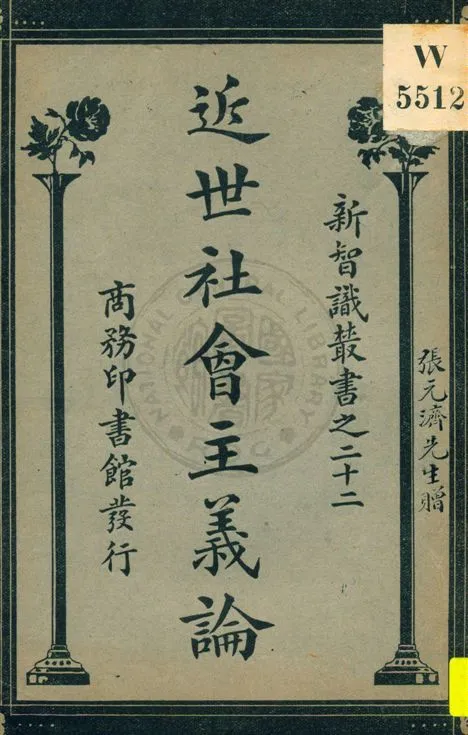 W
5512
張元濟先生贈
新智識叢書之二十二
近世社會主義論
商務印書館發行
NATIONAL CENTRAL LIBRARY